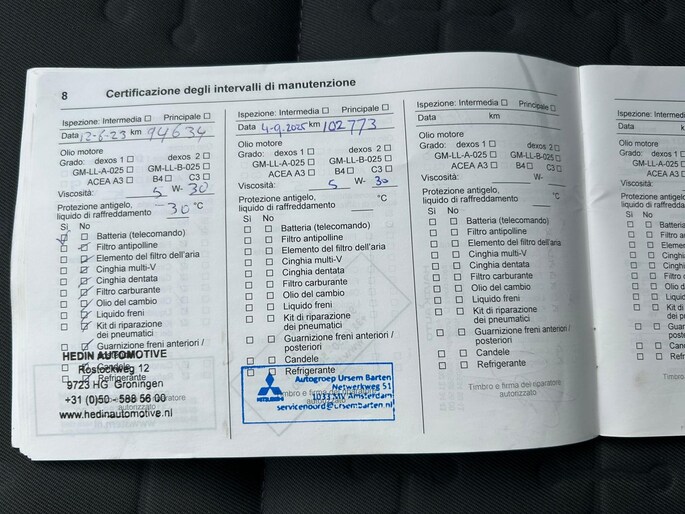 8 Certificazione degli intervalli di manutenzione
Ispezione: Intermedia ☐ Principale ☐
Data 12-6-23 km 94634
Olio motore
Grado: dexos 1 ☐ dexos 2 ☐
GM-LL-A-025 ☐ GM-LL-B-025 ☐
ACEA A3 ☐ B4 ☐ C3 ☐
Viscosità: 5 W- 30
Protezione antigelo,
liquido di raffreddamento 30 °C
Sì No
Batteria (telecomando)
Filtro antipolline
Elemento del filtro dell'aria
Cinghia multi-V
Cinghia dentata
Filtro carburante
Olio del cambio
Liquido freni
Kit di riparazione
dei pneumatici
Guarnizione freni anteriori /
HEDIN AUTOMOTIVE
Candele
Rostockweg 12
Refrigerante
9723 HG Groningen
+31 (0)50 - 588 56 00
autorizzato
www.hedinautomotive.nl
Ispezione: Intermedia ☐ Principale ☐
Data 4-9-2025 km 102773
Olio motore
Grado: dexos 1 ☐ dexos 2 ☐
GM-LL-A-025 ☐ GM-LL-B-025 ☐
ACEA A3 ☐ B4 ☐ C3 ☐
Viscosità: 5 W- 30
Protezione antigelo,
liquido di raffreddamento °C
Sì No
Batteria (telecomando)
Filtro antipolline
Elemento del filtro dell'aria
Cinghia multi-V
Cinghia dentata
Filtro carburante
Olio del cambio
Liquido freni
Kit di riparazione
dei pneumatici
Guarnizione freni anteriori /
posteriori
Candele
Refrigerante
Autogroep Ursem Barten
Netwerkweg 51
1033 MV Amsterdam
Timbro e firma del
servicenoord@ursembarten.nl
autorizzato
MITSUBISHI
Ispezione: Intermedia ☐ Principale ☐
Data km
Olio motore
Grado: dexos 1 ☐ dexos 2 ☐
GM-LL-A-025 ☐ GM-LL-B-025 ☐
ACEA A3 ☐ B4 ☐ C3 ☐
Viscosità: W-
Protezione antigelo,
liquido di raffreddamento °C
Sì No
Batteria (telecomando)
Filtro antipolline
Elemento del filtro dell'aria
Cinghia multi-V
Cinghia dentata
Filtro carburante
Olio del cambio
Liquido freni
Kit di riparazione
dei pneumatici
Guarnizione freni anteriori /
posteriori
Candele
Refrigerante
Timbro e firma del riparatore
autorizzato
Ispezione: Inter
Data
Olio motore
Grado: dexos
GM-LL-A-02
ACEA A
Viscosità:
Protezione anti
liquido di raffre
Sì No